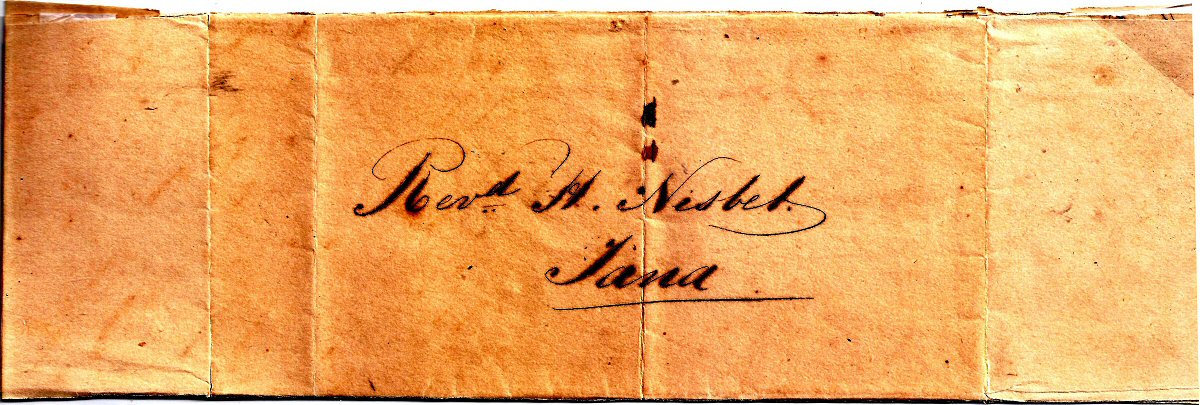 Revd H. Nisbet.
Tana